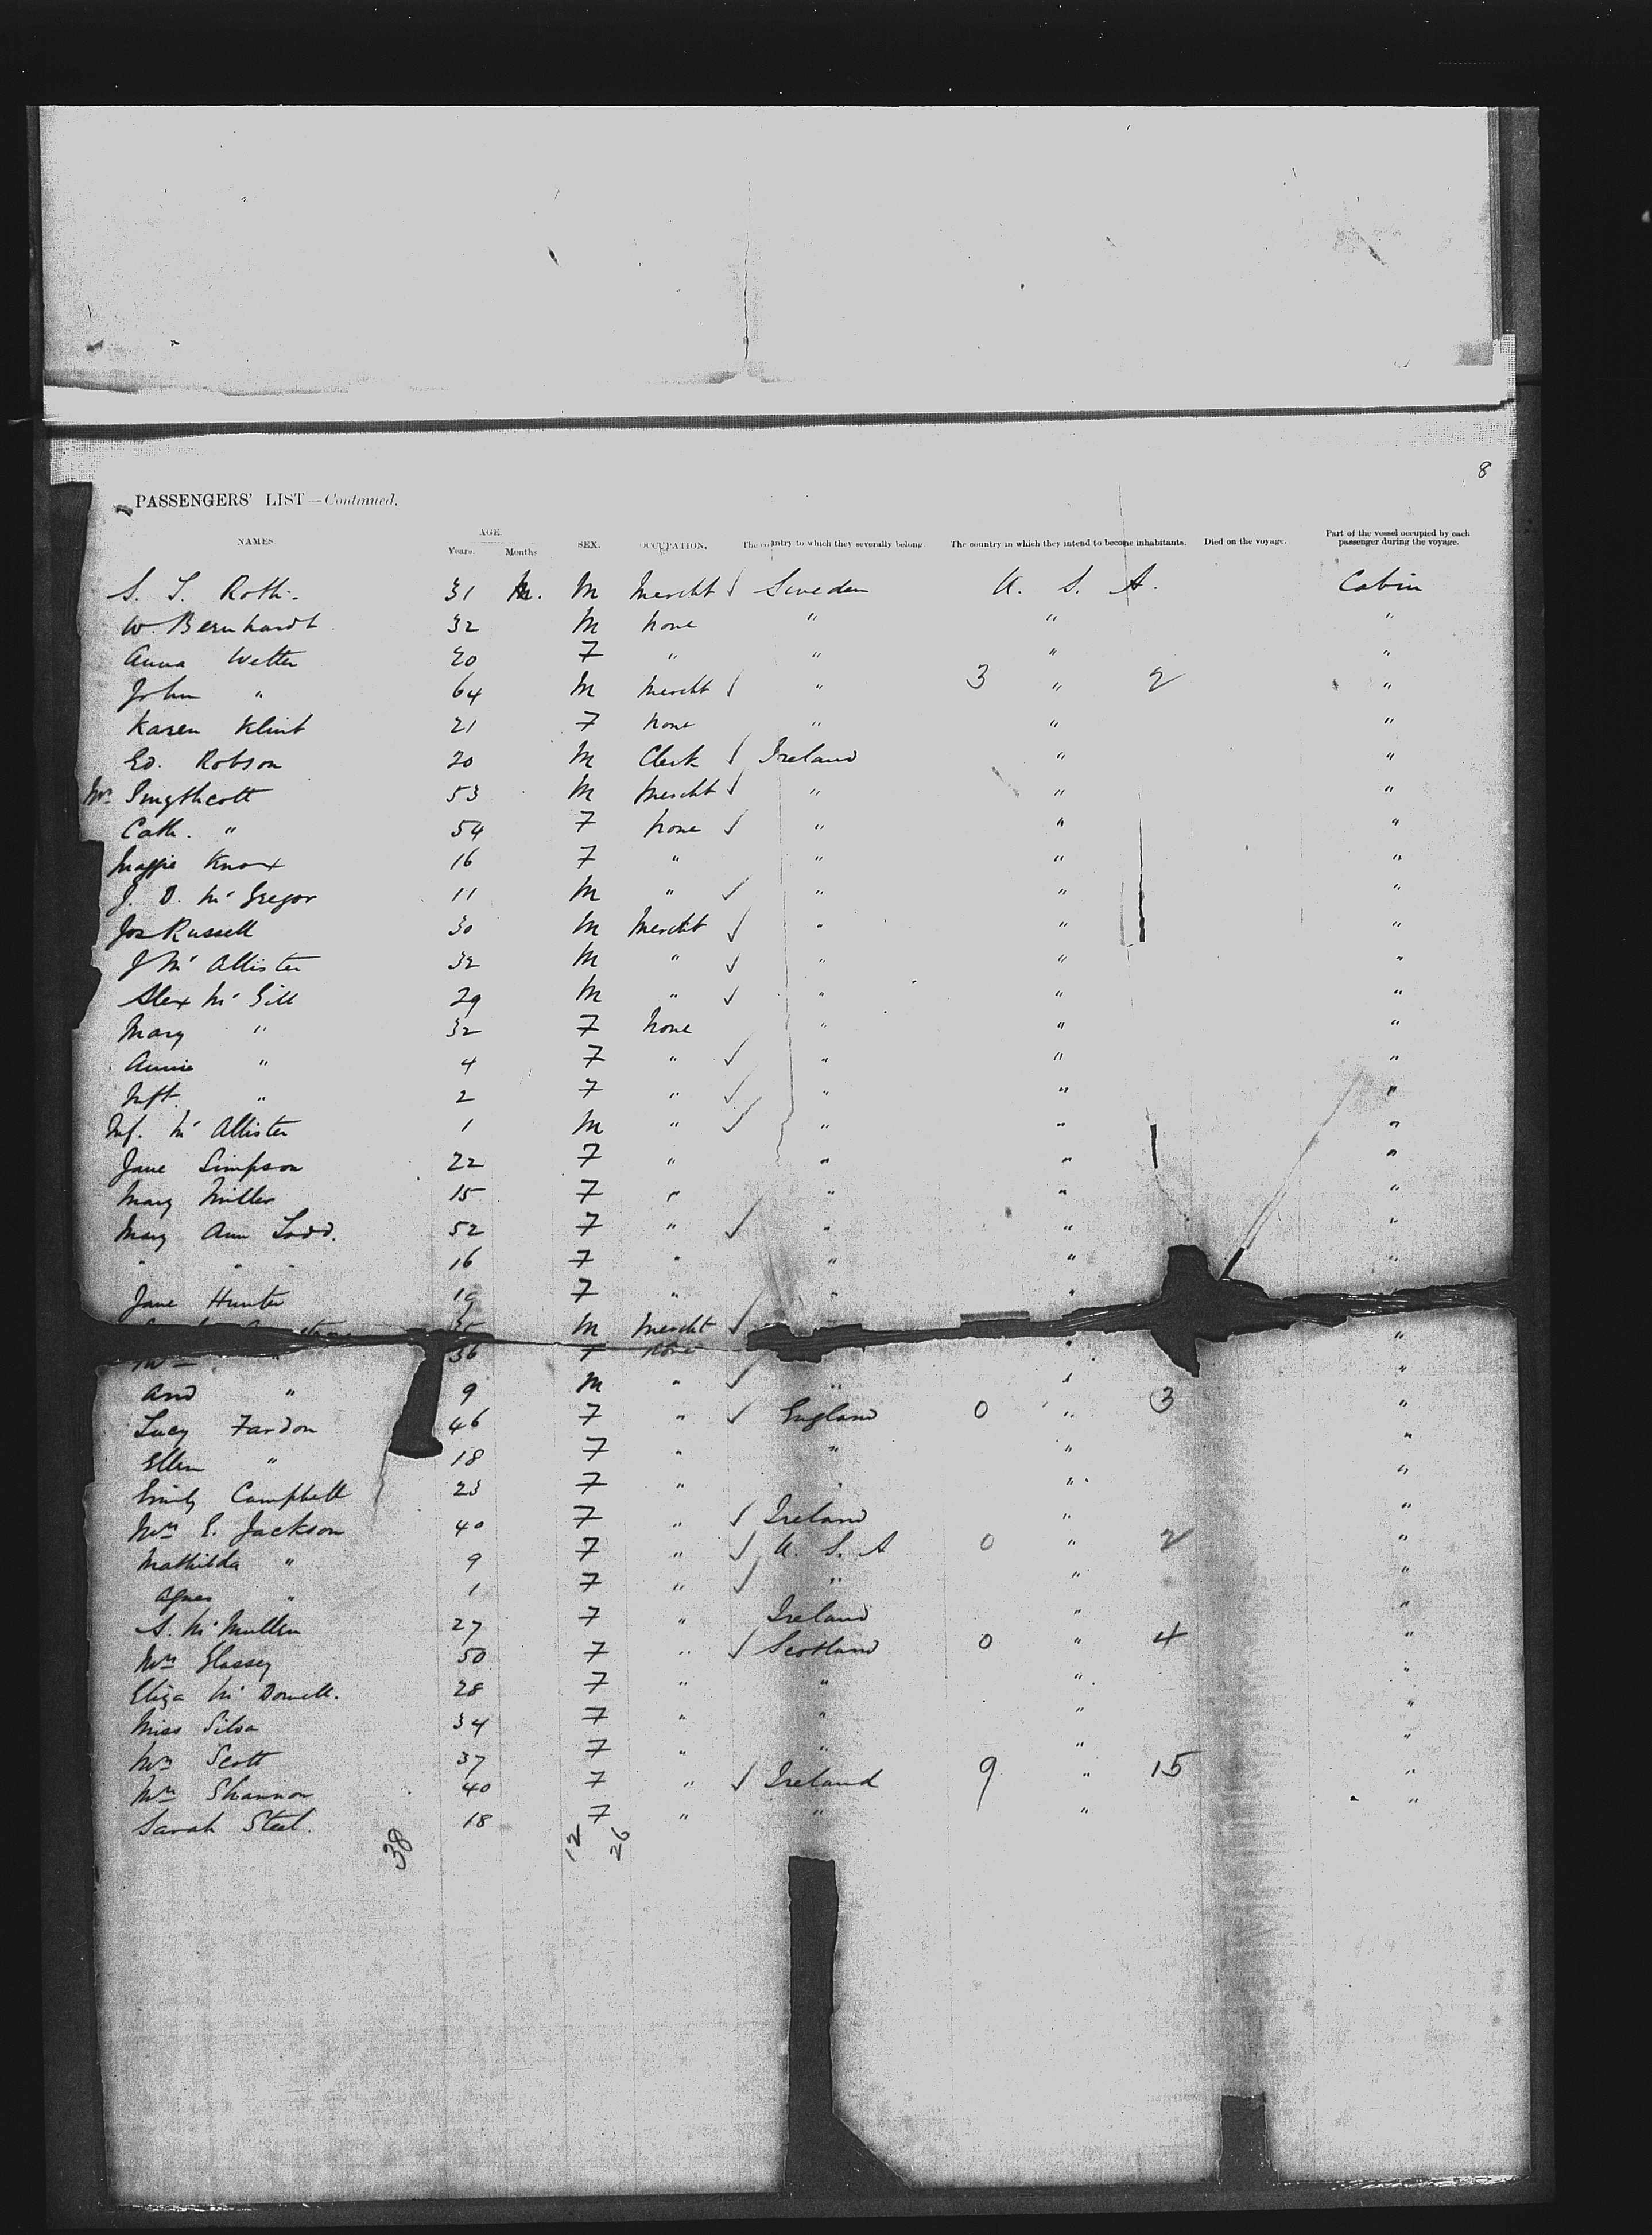 8
PASSENGERS' LIST—Continued.
NAMES. AGE. Years. Months. SEX. OCCUPATION. The country to which they severally belong. The country in which they intend to become inhabitants. Died on the voyage. Part of the vessel occupied by each passenger during the voyage.
S. S. Roth 31 M. M Mercht Sweden U. S. A. Cabin
W. Bernhardt 32 M None " " "
Anna Wetter 20 F " " " "
John " 64 M Mercht " 3 " 2 "
Karen Klint 21 F None " " "
Ed. Robson 20 M Clerk Ireland " "
Mr Smythcott 53 M Mercht " " "
Cath. " 54 F None " " "
Maggie Knox 16 F " " " "
J. D. McGregor 11 M " " " "
Jos Russell 30 M Mercht " " "
J McAllister 32 M " " " "
Alex McGill 29 M " " " "
Mary " 32 F None " " "
Annie " 4 F " " " "
Inft. " 2 F " " " "
Inf. McAllister 1 M " " " "
Jane Simpson 22 F " " " "
Mary Miller 15 F " " " "
Mary Ann Todd. 52 F " " " "
" " " 16 F " " " "
Jane Hunter 19 F " " "
35 M Mercht
Mrs " 36 F None " "
And " 9 M " " " "
Lucy Fardon 46 F " England 0 " 3 "
Ellen " 18 F " " " "
Emily Campbell 23 F " " " "
Mrs E. Jackson 40 F " Ireland " "
Mathilda " 9 F " U. S. A 0 " 2 "
Agnes " 1 F " " " "
S. McMullen 27 F " Ireland " "
Mrs Glassey 50 F " Scotland 0 " 4 "
Eliza McDowell. 28 F " " " "
Miss Silva 34 F " " " "
Mrs Scott 37 F " " " "
Mrs Shannon 40 F " Ireland 9 " 15 "
Sarah Steel. 18 F " " " "
38 12 26